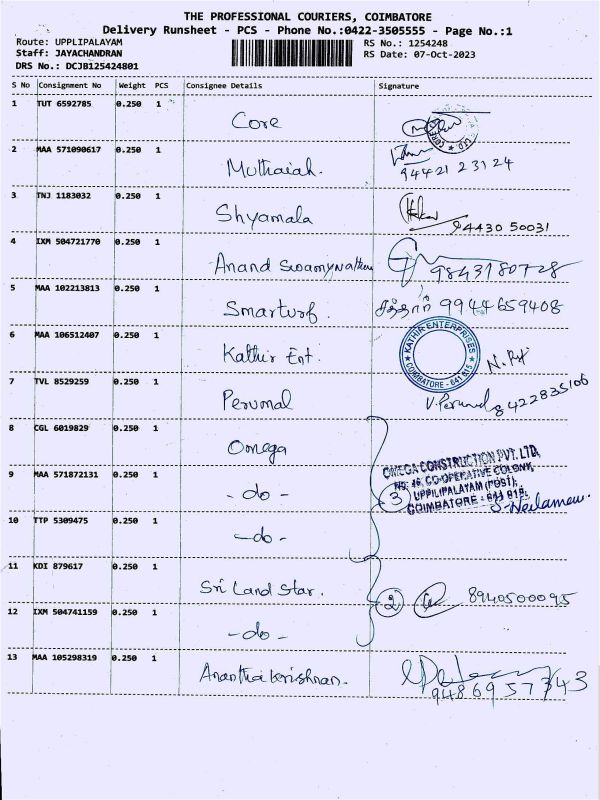 THE PROFESSIONAL COURIERS, COIMBATORE
Delivery Runsheet - PCS - Phone No.:0422-3505555 - Page No.:1
Route: UPPLIPALAYAM RS No.: 1254248
Staff: JAYACHANDRAN RS Date: 07-Oct-2023
DRS No.: DCJB125424801
S No Consignment No Weight PCS Consignee Details Signature
1 TUT 6592785 0.250 1 Core
2 MAA 571090617 0.250 1 Muthaiah. 94421 23124
3 TNJ 1183032 0.250 1 Shyamala 94430 50031
4 IXM 504721770 0.250 1 Anand Swamynathan 9843180728
5 MAA 102213813 0.250 1 Smarturf. 9944659408
6 MAA 106512407 0.250 1 Kathir Ent. KATHIR ENTERPRISES COIMBATORE - 641 015
7 TVL 8529259 0.250 1 Perumal V. Perumal 8422835106
8 CGL 6019829 0.250 1 Omega
OMEGA CONSTRUCTION PVT. LTD,
9 MAA 571872131 0.250 1 -do- 3 NO: 46, CO-OPERATIVE COLONY,
UPPILIPALAYAM (POST),
COIMBATORE - 641 015.
10 TTP 5309475 0.250 1 -do-
11 KDI 879617 0.250 1 Sri Land Star. 2 8940500095
12 IXM 504741159 0.250 1 -do-
13 MAA 105298319 0.250 1 Ananthakrishnan. 9486957343